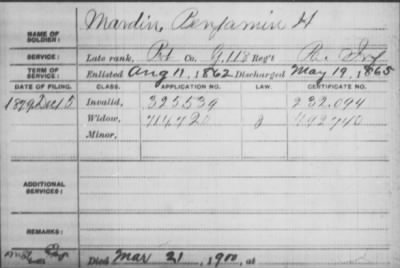 Mardin, Benjamin H
NAME OF SOLDIER:
SERVICE: Late rank, Pvt Co. G, 118 Reg't Pa. Inf
TERM OF SERVICE: Enlisted Aug 11, 1862 Discharged May 19, 1865
DATE OF FILING. CLASS. APPLICATION NO. LAW. CERTIFICATE NO.
1879 Dec 12 Invalid, 325539 232.094
Widow, 714720 492740
Minor,
ADDITIONAL SERVICES:
REMARKS:
Died Mar 21, 1900, at